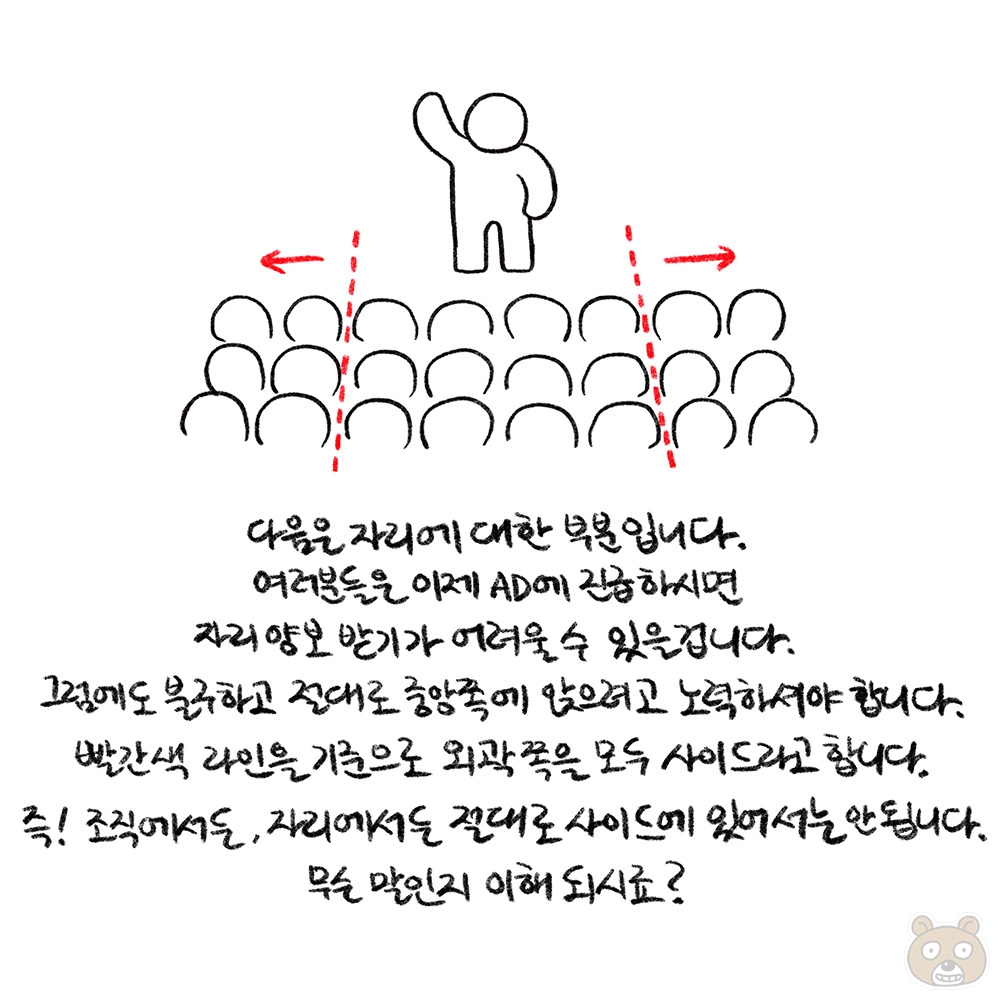 다음은 자리에 대한 부분입니다.
여러분들은 이제 AD에 진급하시면
자리 양보 받기가 어려울 수 있을겁니다.
그럼에도 불구하고 절대로 중앙쪽에 앉으려고 노력하셔야 합니다.
빨간색 라인을 기준으로 외곽 쪽을 모두 사이드라고 합니다.
즉! 조직에서든, 자리에서든 절대로 사이드에 있어서는 안됩니다.
무슨 말인지 이해 되시죠?